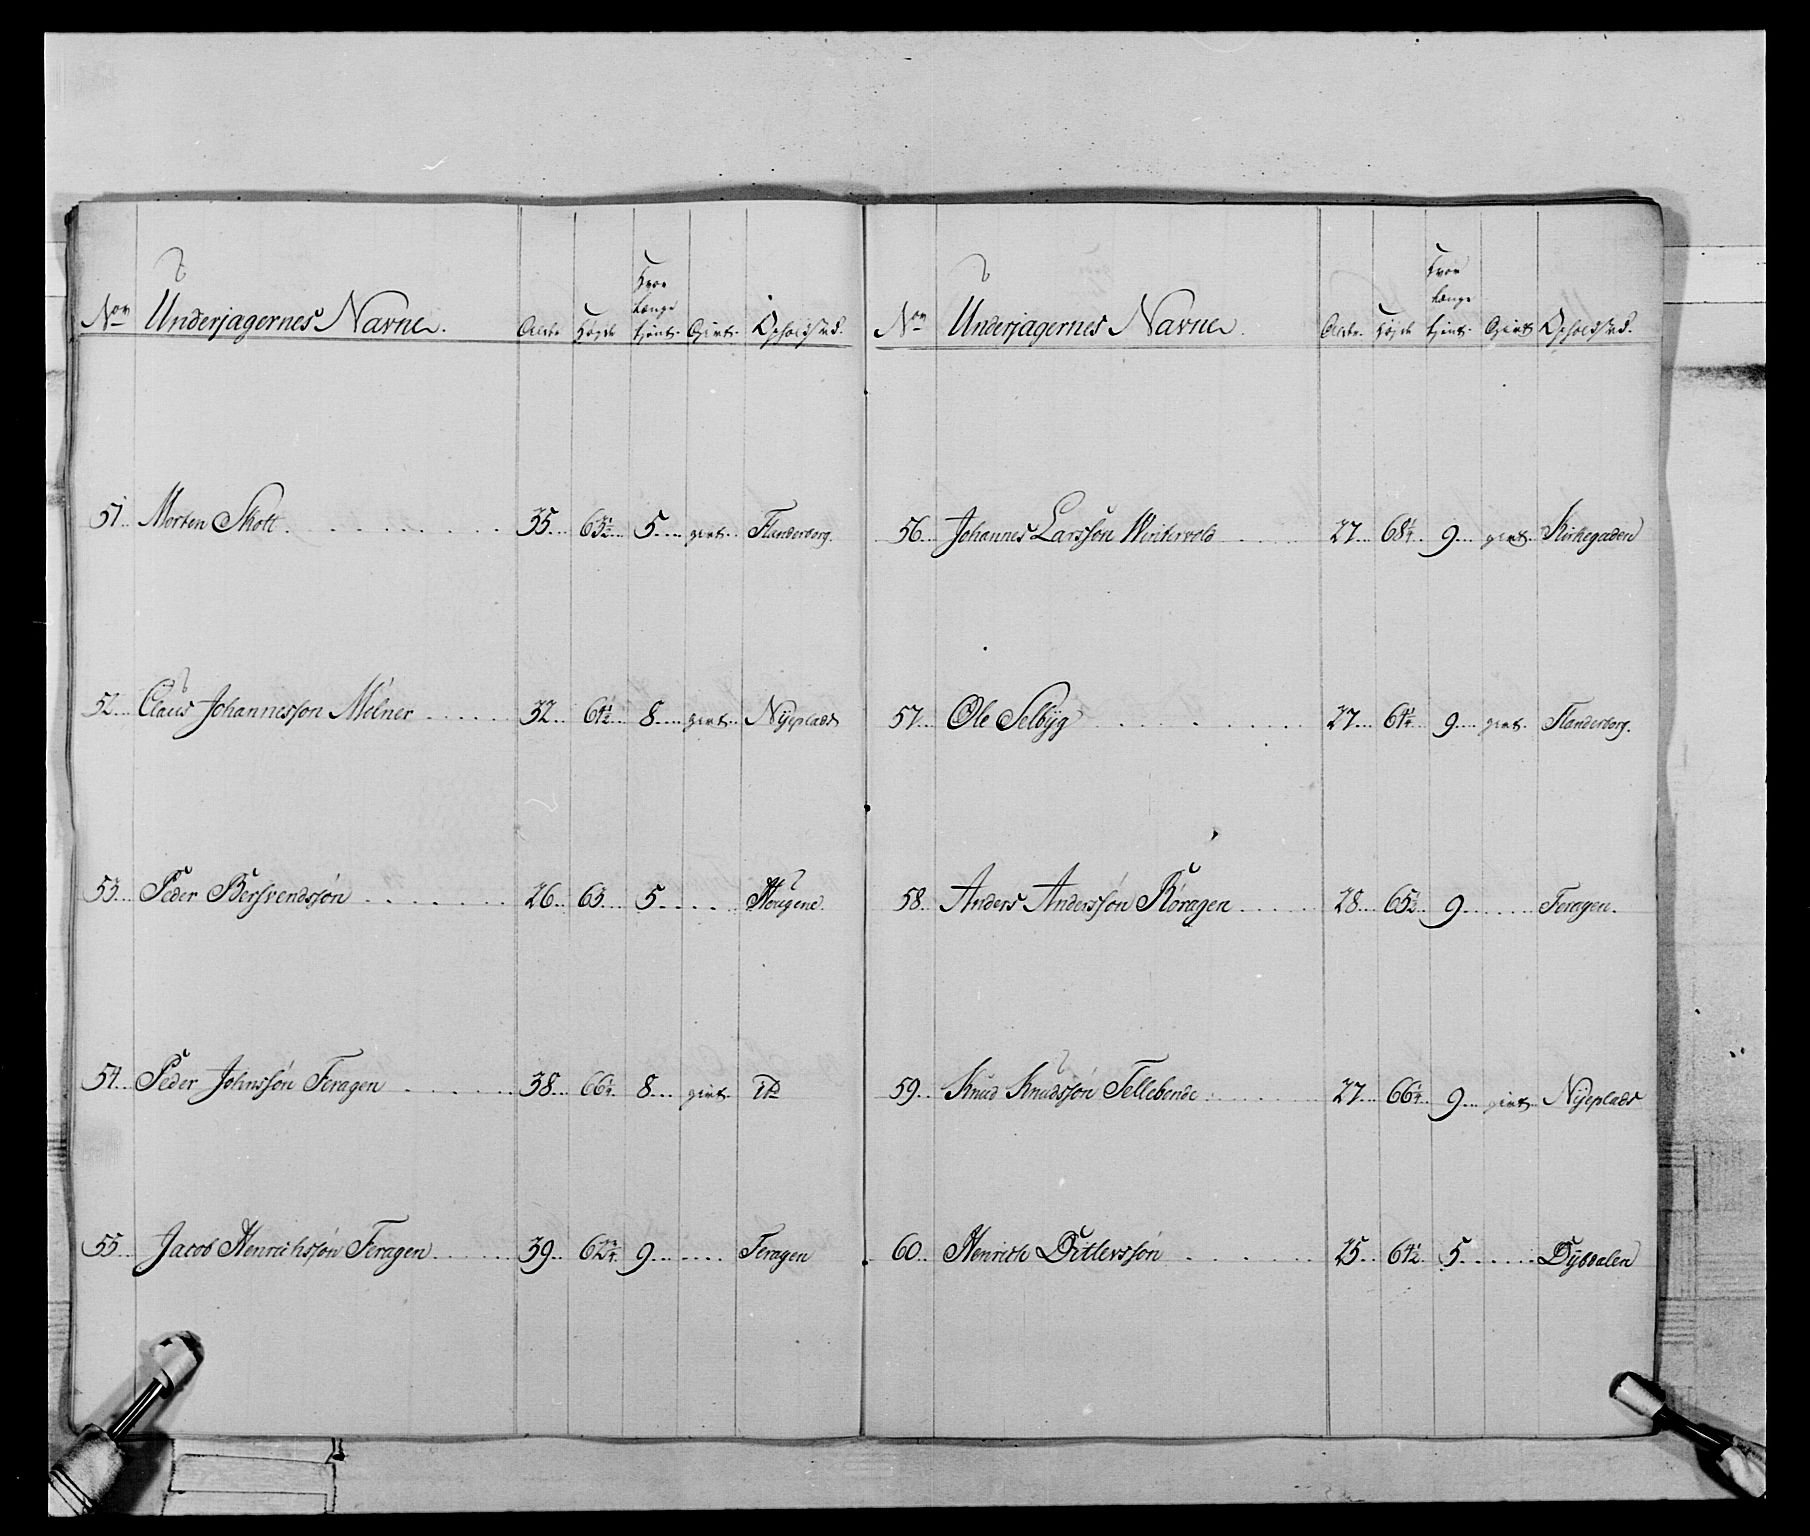 Nor Underjagernes Navne. Alder Høyde Hvor længe tjent. Givt. Opholdsted.
51 Morten Skott 35 63½ 5 givt Flanderborg.
52 Claus Johannesson Mølner 32 64½ 8 givt Nÿeplads
53 Peder Bersvendssøn 26 63 5 Hougene
54 Peder Johnssøn Feragen 38 66¼ 8 givt ito
55 Jacob Henrichssøn Feragen 39 62¾ 9 Feragen
Nor Underjagernes Navne. Alder Høyde Hvor længe tjent. Givt Opholdsted.
56 Johannes Larssøn Wintervold 27 68¼ 9 givt Kirkegaden
57 Ole Selbÿg 27 64¼ 9 givt Flanderborg.
58 Anders Anderssøn Røragen 28 65½ 9 Feragen.
59 Knud Knudssøn Tellebonde 27 66¼ 9 givt Nÿeplads
60 Henrich Ditlevssøn 25 64½ 5 Dÿbdalen